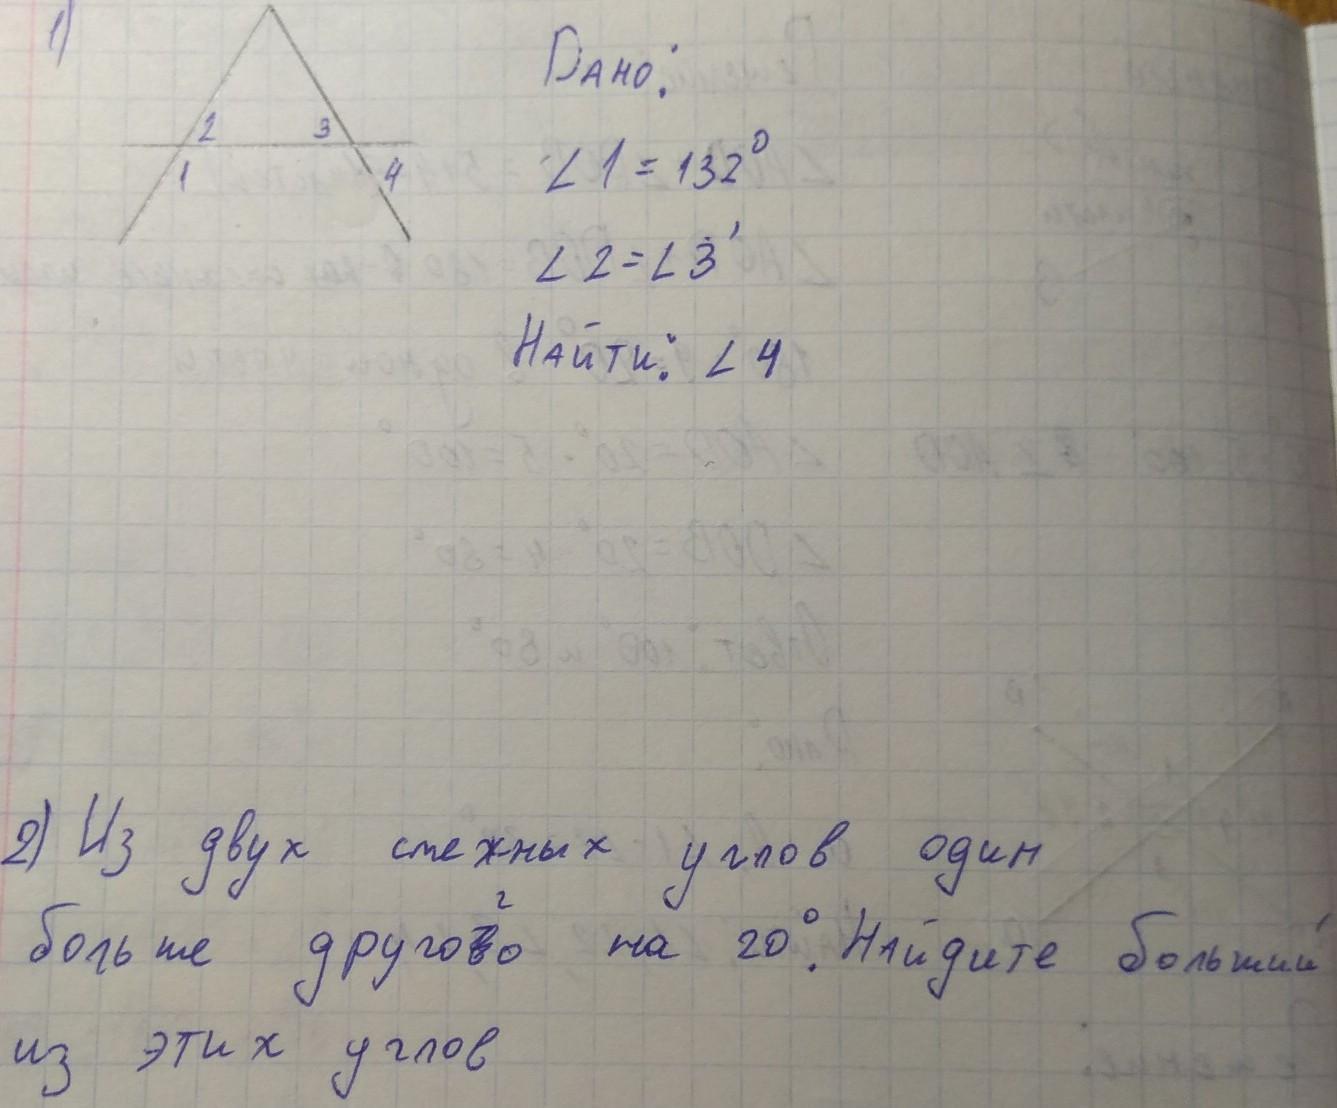 1)
2
3
1
4
Дано:
∠1 = 132°
∠2 = ∠3
Найти: ∠4
2) Из двух смежных углов один
г
больше другого на 20°. Найдите больший
из этих углов